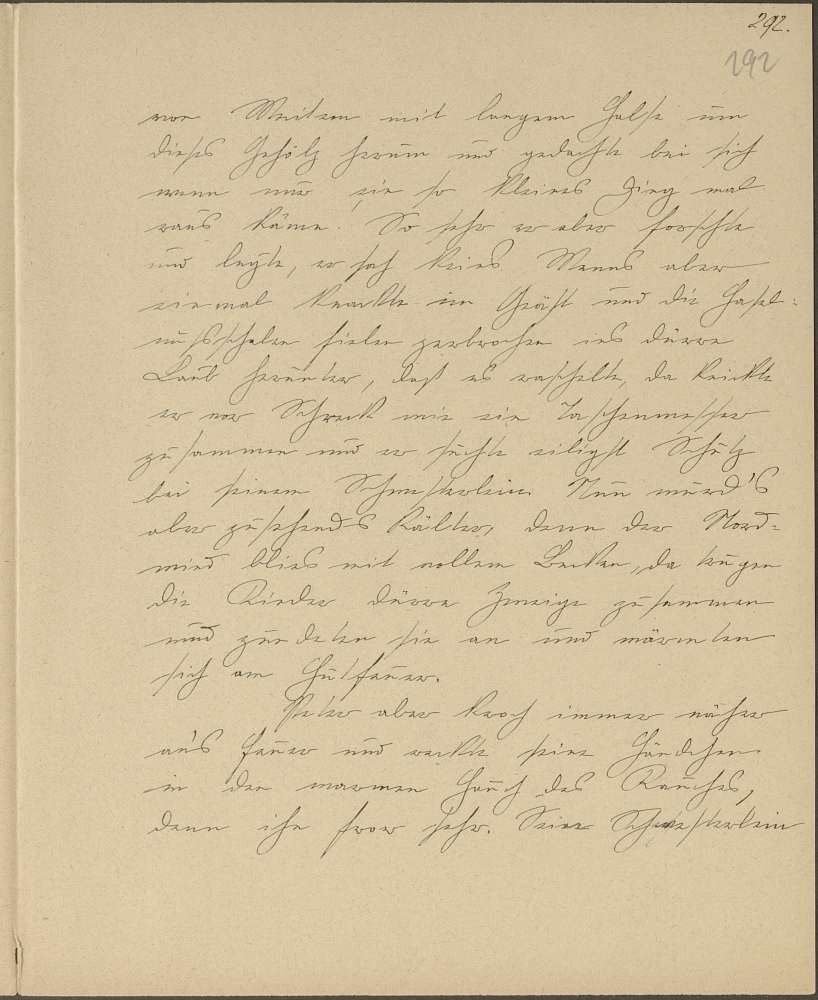 292.
292
von Weitem mit langem Halse um
dieses Gehölz herum und gedachte bei sich
wenn nur ein so kleines Ding mal
raus käme! So sehr er aber forschte
und legte, er sah keins Wenns aber
einmal knackte im Geäst und die Hasel-
nußschalen fielen zerbrochen ins dürre
Laub herunter, daß es raschelte, da knickte
er vor Schreck wie ein Taschenmesser
zusammen und er suchte eiligst Schutz
bei seinem Schwesterlein. Nun wurd's
aber zusehends kälter, denn der Nord-
wind blies mit vollen Backen, da trugen
die Kinder dürre Zweige zusammen
und zündeten sie an und wärmten
sich am Hutfeuer.
Peter aber kroch immer näher
ans Feuer und reckte seine Händchen
in den warmen Hauch des Rauches,
denn ihn fror sehr. Seine Schwesterlein